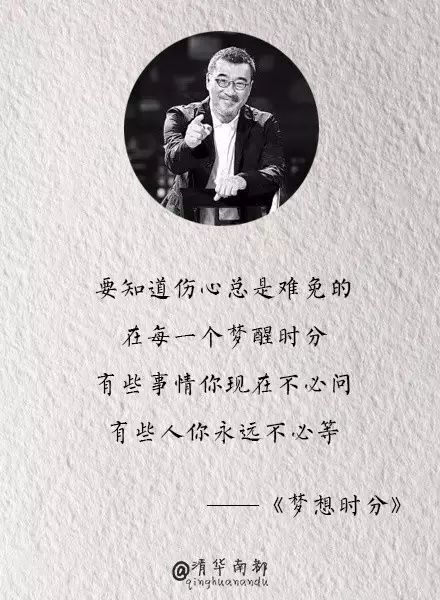 要知道伤心总是难免的
在每一个梦醒时分
有些事情你现在不必问
有些人你永远不必等
——《梦想时分》
@清华南都
qinghuanandu